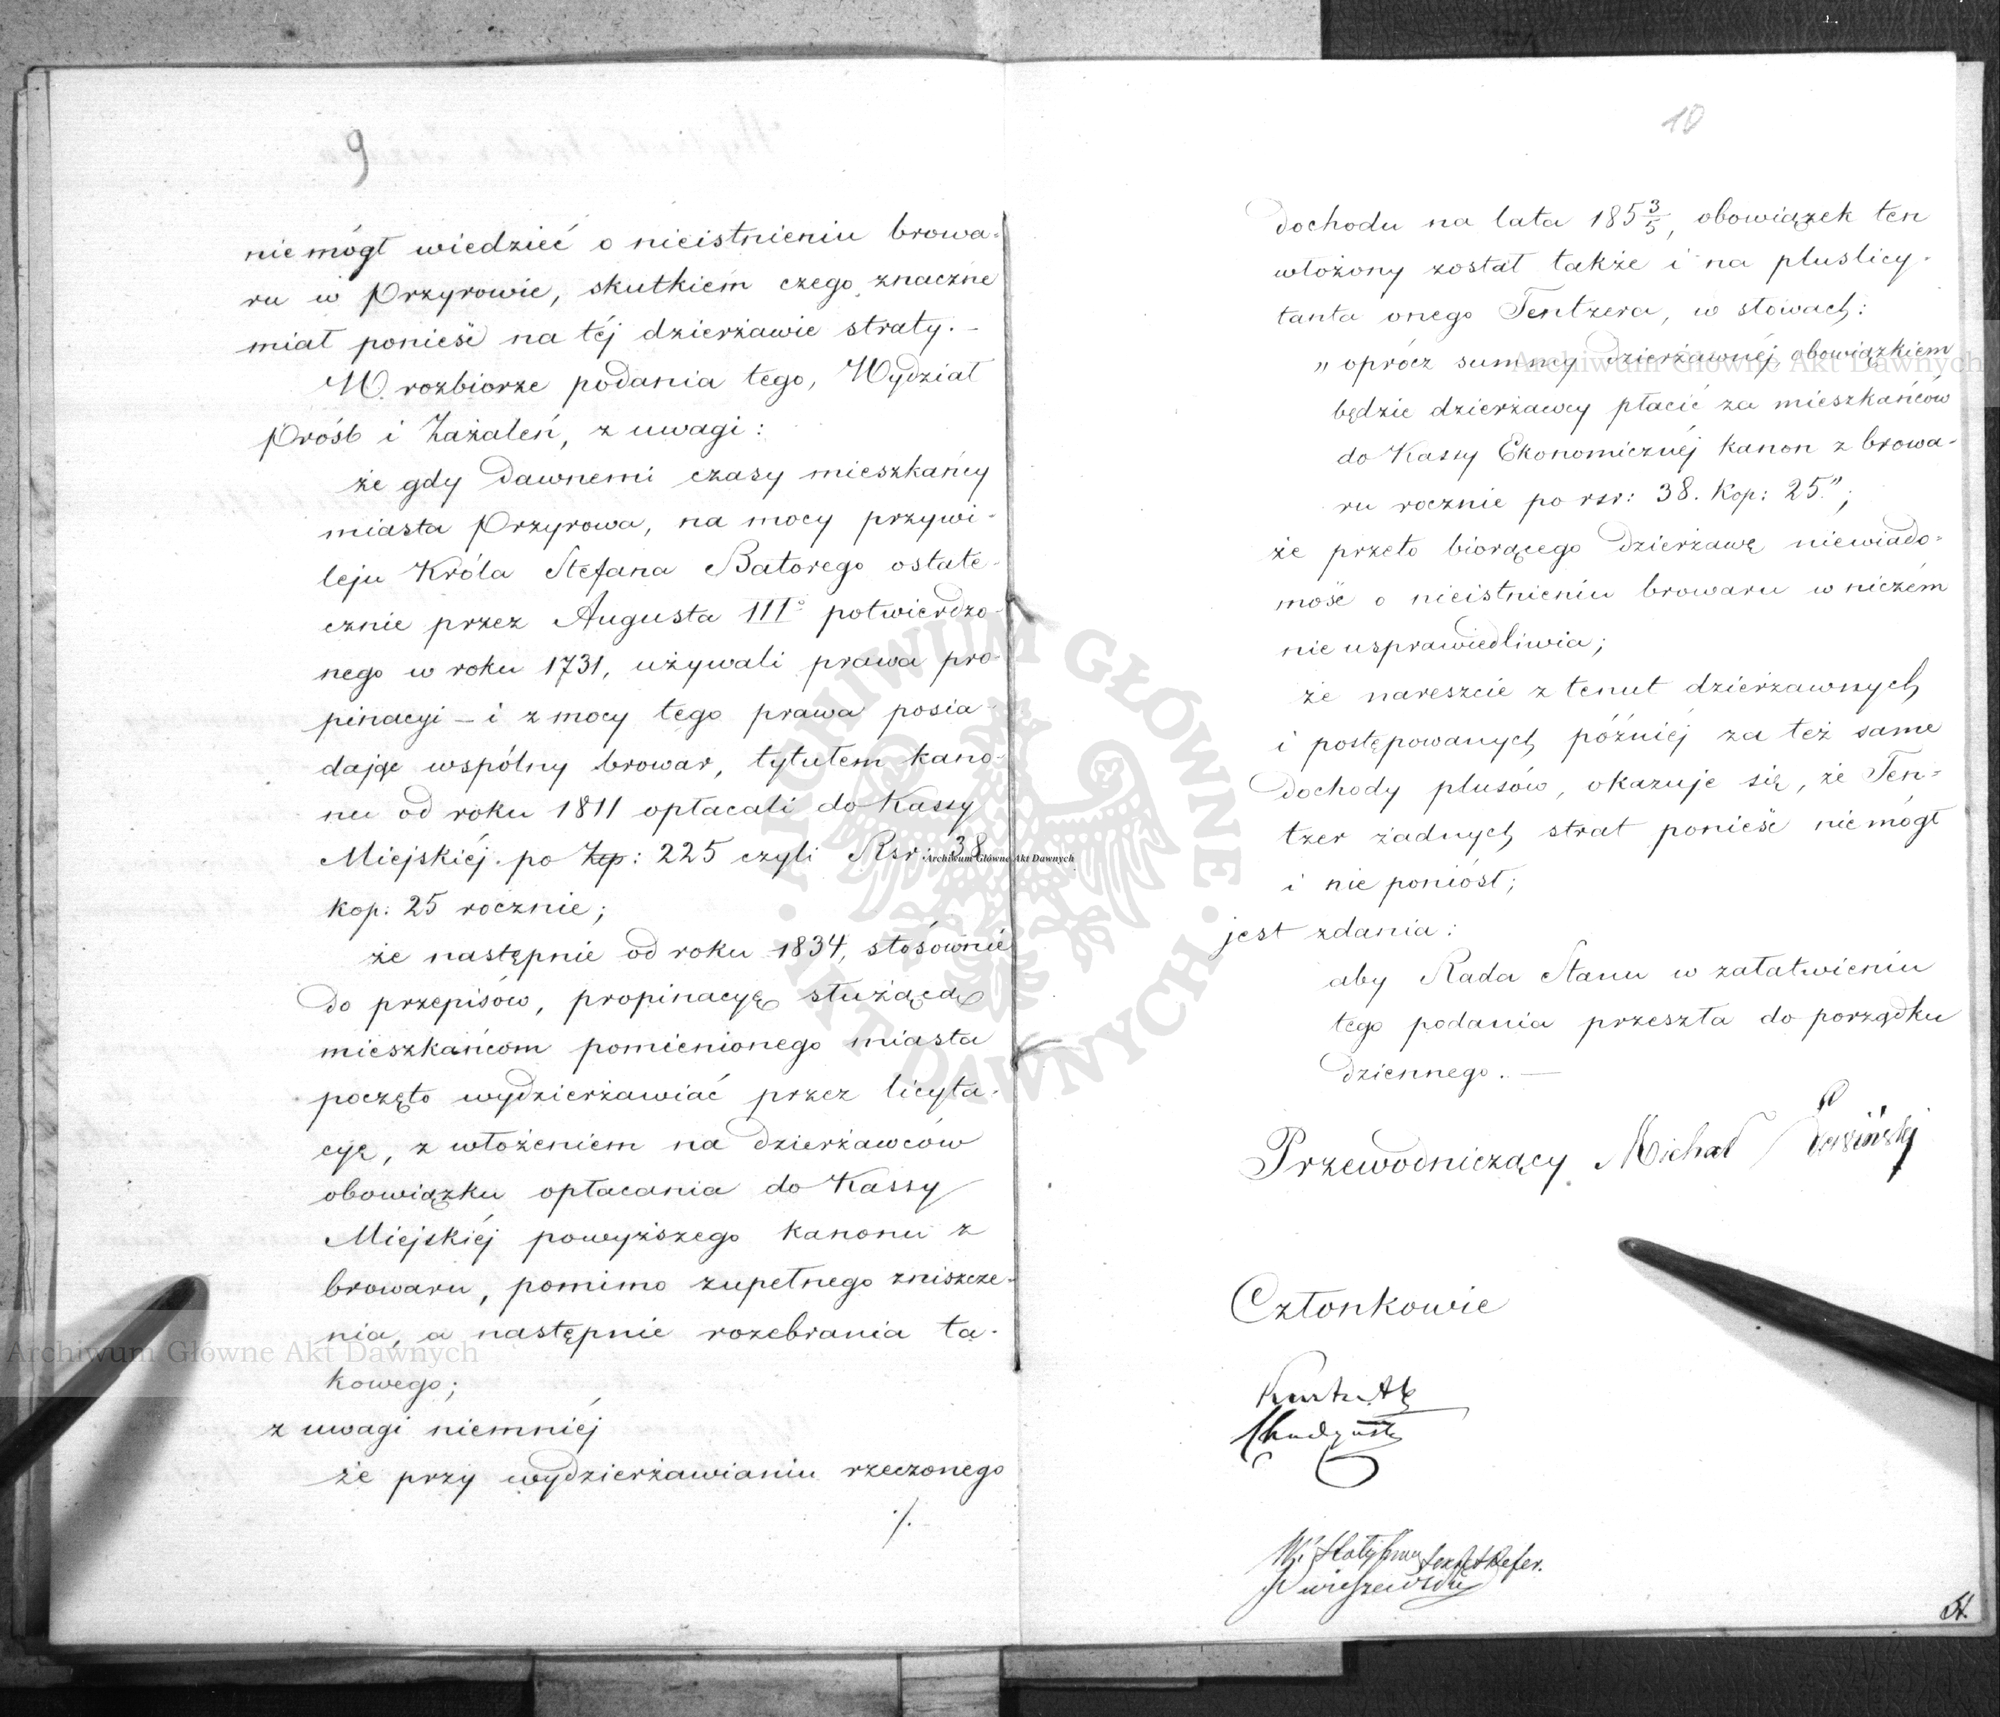 9
nie mógł wiedzieć o nieistnieniu browa-
ru w Przyrowie, skutkiem czego znaczne
miał ponieść na téj dzierżawie straty. –
W rozbiorze podania tego, Wydział
Próśb i Zażaleń, z uwagi:
że gdy dawnemi czasy mieszkańcy
miasta Przyrowa, na mocy przywi-
leju Króla Stefana Batorego ostate-
cznie przez Augusta IIIº potwierdzo-
nego w roku 1731, używali prawa pro-
pinacyi – i z mocy tego prawa posia-
dając wspólny browar, tytułem kano-
nu od roku 1811 opłacali do Kassy
Miejskiéj po Złp: 225 czyli Rsr: 38
kop: 25 rocznie;
że następnie od roku 1834, stósownie
do przepisów, propinacyę służącą
mieszkańcom pomienionego miasta
poczęto wydzierżawiać przez licyta-
cyę, z włożeniem na dzierżawców
obowiązku opłacania do Kassy
Miejskiéj powyższego kanonu z
browaru, pomimo zupełnego zniszcze-
nia, a następnie rozebrania ta-
kowego;
z uwagi niemniéj
że przy wydzierżawianiu rzeczonego
./.
10
dochodu na lata 185 3/5, obowiązek ten
włożony został także i na pluslicy-
tanta onego Tentzera, w słowach:
„oprócz summy dzierżawnéj obowiązkiem
będzie dzierżawcy płacić za mieszkańców
do Kassy Ekonomicznéj kanon z browa-
ru rocznie po rsr: 38. kop: 25.";
że przeto biorącego dzierżawę niewiado-
mość o nieistnieniu browaru w niczém
nie usprawiedliwia;
że nareszcie z tenut dzierżawnych
i postępowanych później za też same
dochody plusów, okazuje się, że Ten-
tzer żadnych strat ponieść nie mógł
i nie poniósł;
jest zdania:
aby Rada Stanu w załatwieniu
tego podania przeszła do porządku
dziennego. –
Przewodniczący Michał
Członkowie
Archiwum Główne Akt Dawnych
Archiwum Główne Akt Dawnych
Archiwum Główne Akt Dawnych
ARCHIWUM GŁÓWNE · AKT DAWNYCH ·